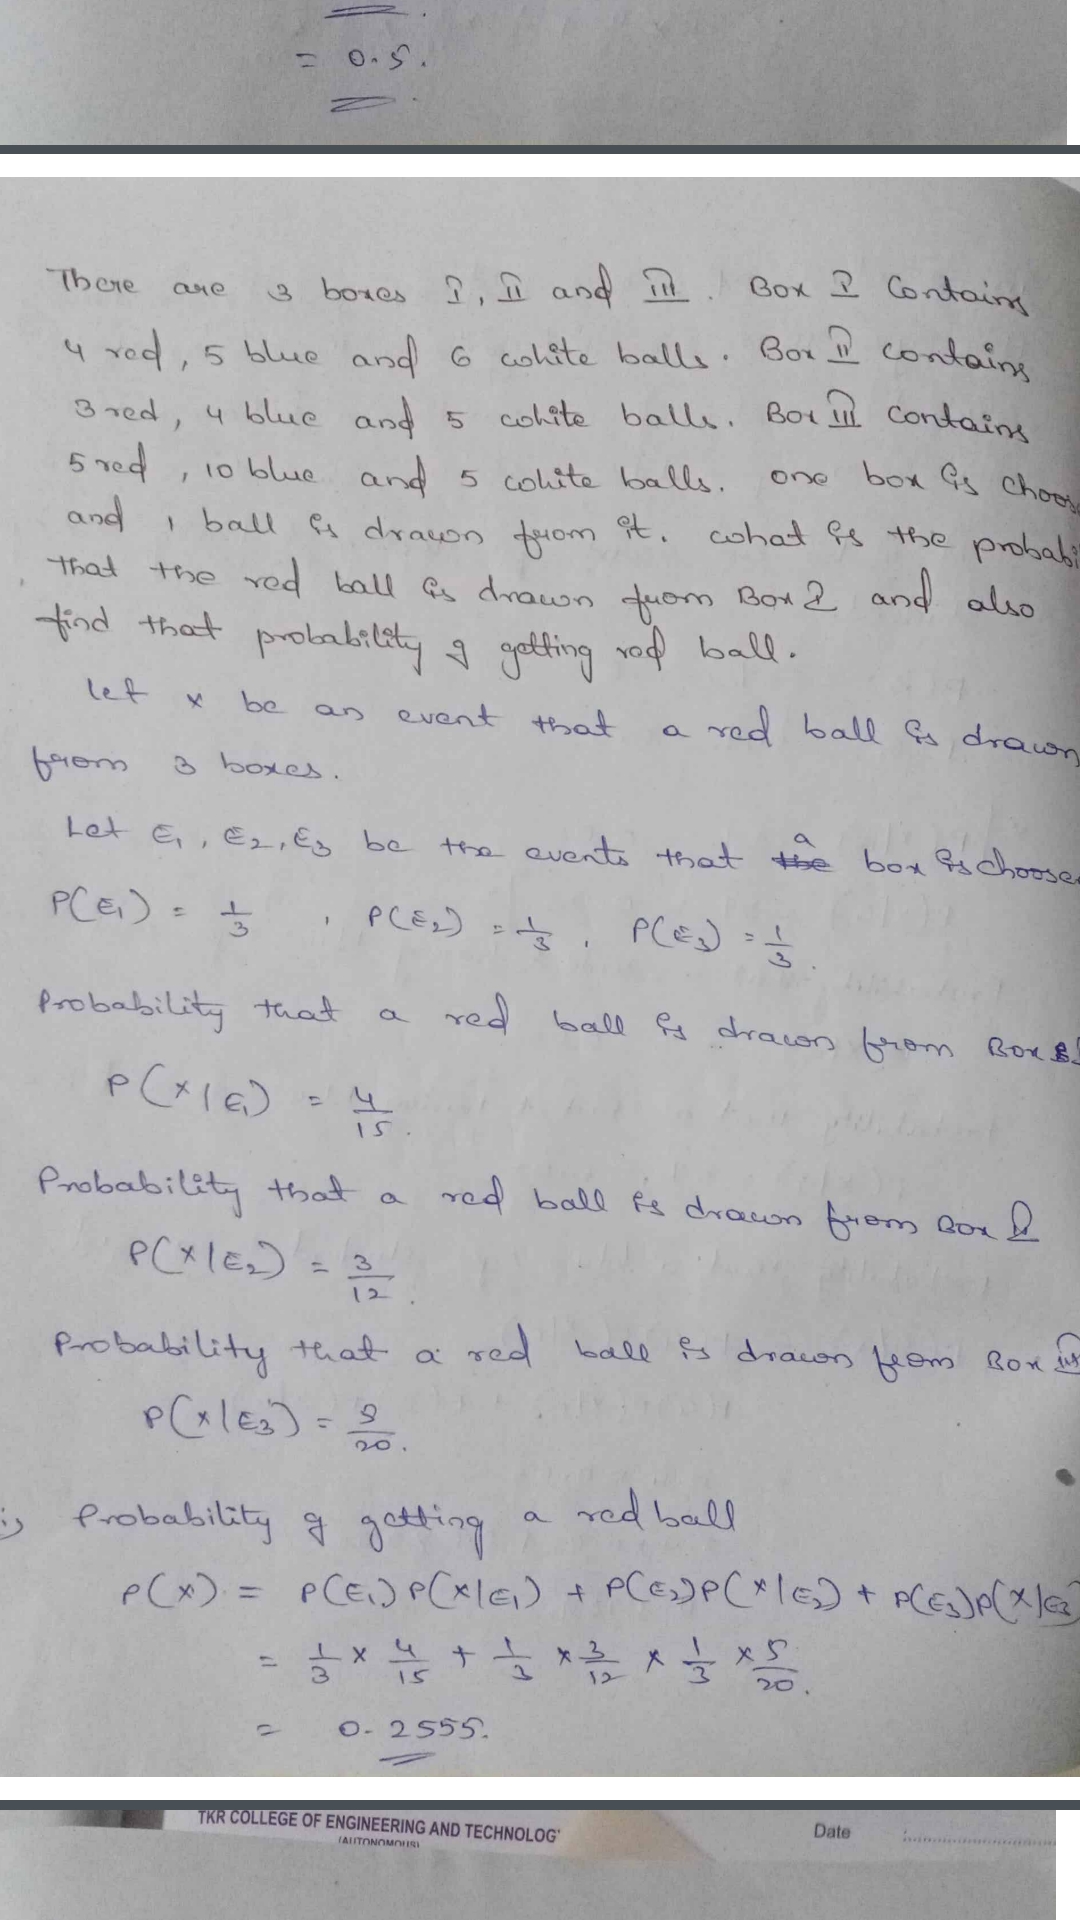 = 0.5.
There are 3 boxes I, II and III. Box I Contains
4 red, 5 blue and 6 white balls. Box II contains
3 red, 4 blue and 5 white balls. Box III contains
5 red, 10 blue and 5 white balls. one box is choos
and 1 ball is drawn from it. what is the probabi
that the red ball is drawn from Box 2 and also
find that probability of getting red ball.
Let x be an event that a red ball is drawn
from 3 boxes.
Let E1, E2, E3 be the events that a box is choose
P(E1) = 1/3, P(E2) = 1/3, P(E3) = 1/3.
Probability that a red ball is drawn from Box
P(X|E1) = 4/15.
Probability that a red ball is drawn from Box II
P(X|E2) = 3/12.
Probability that a red ball is drawn from Box III
P(X|E3) = 5/20.
i) Probability of getting a red ball
P(X) = P(E1)P(X|E1) + P(E2)P(X|E2) + P(E3)P(X|E3)
= 1/3 x 4/15 + 1/3 x 3/12 x 1/3 x 5/20.
= 0.2555.
TKR COLLEGE OF ENGINEERING AND TECHNOLOG
(AUTONOMOUS)
Date